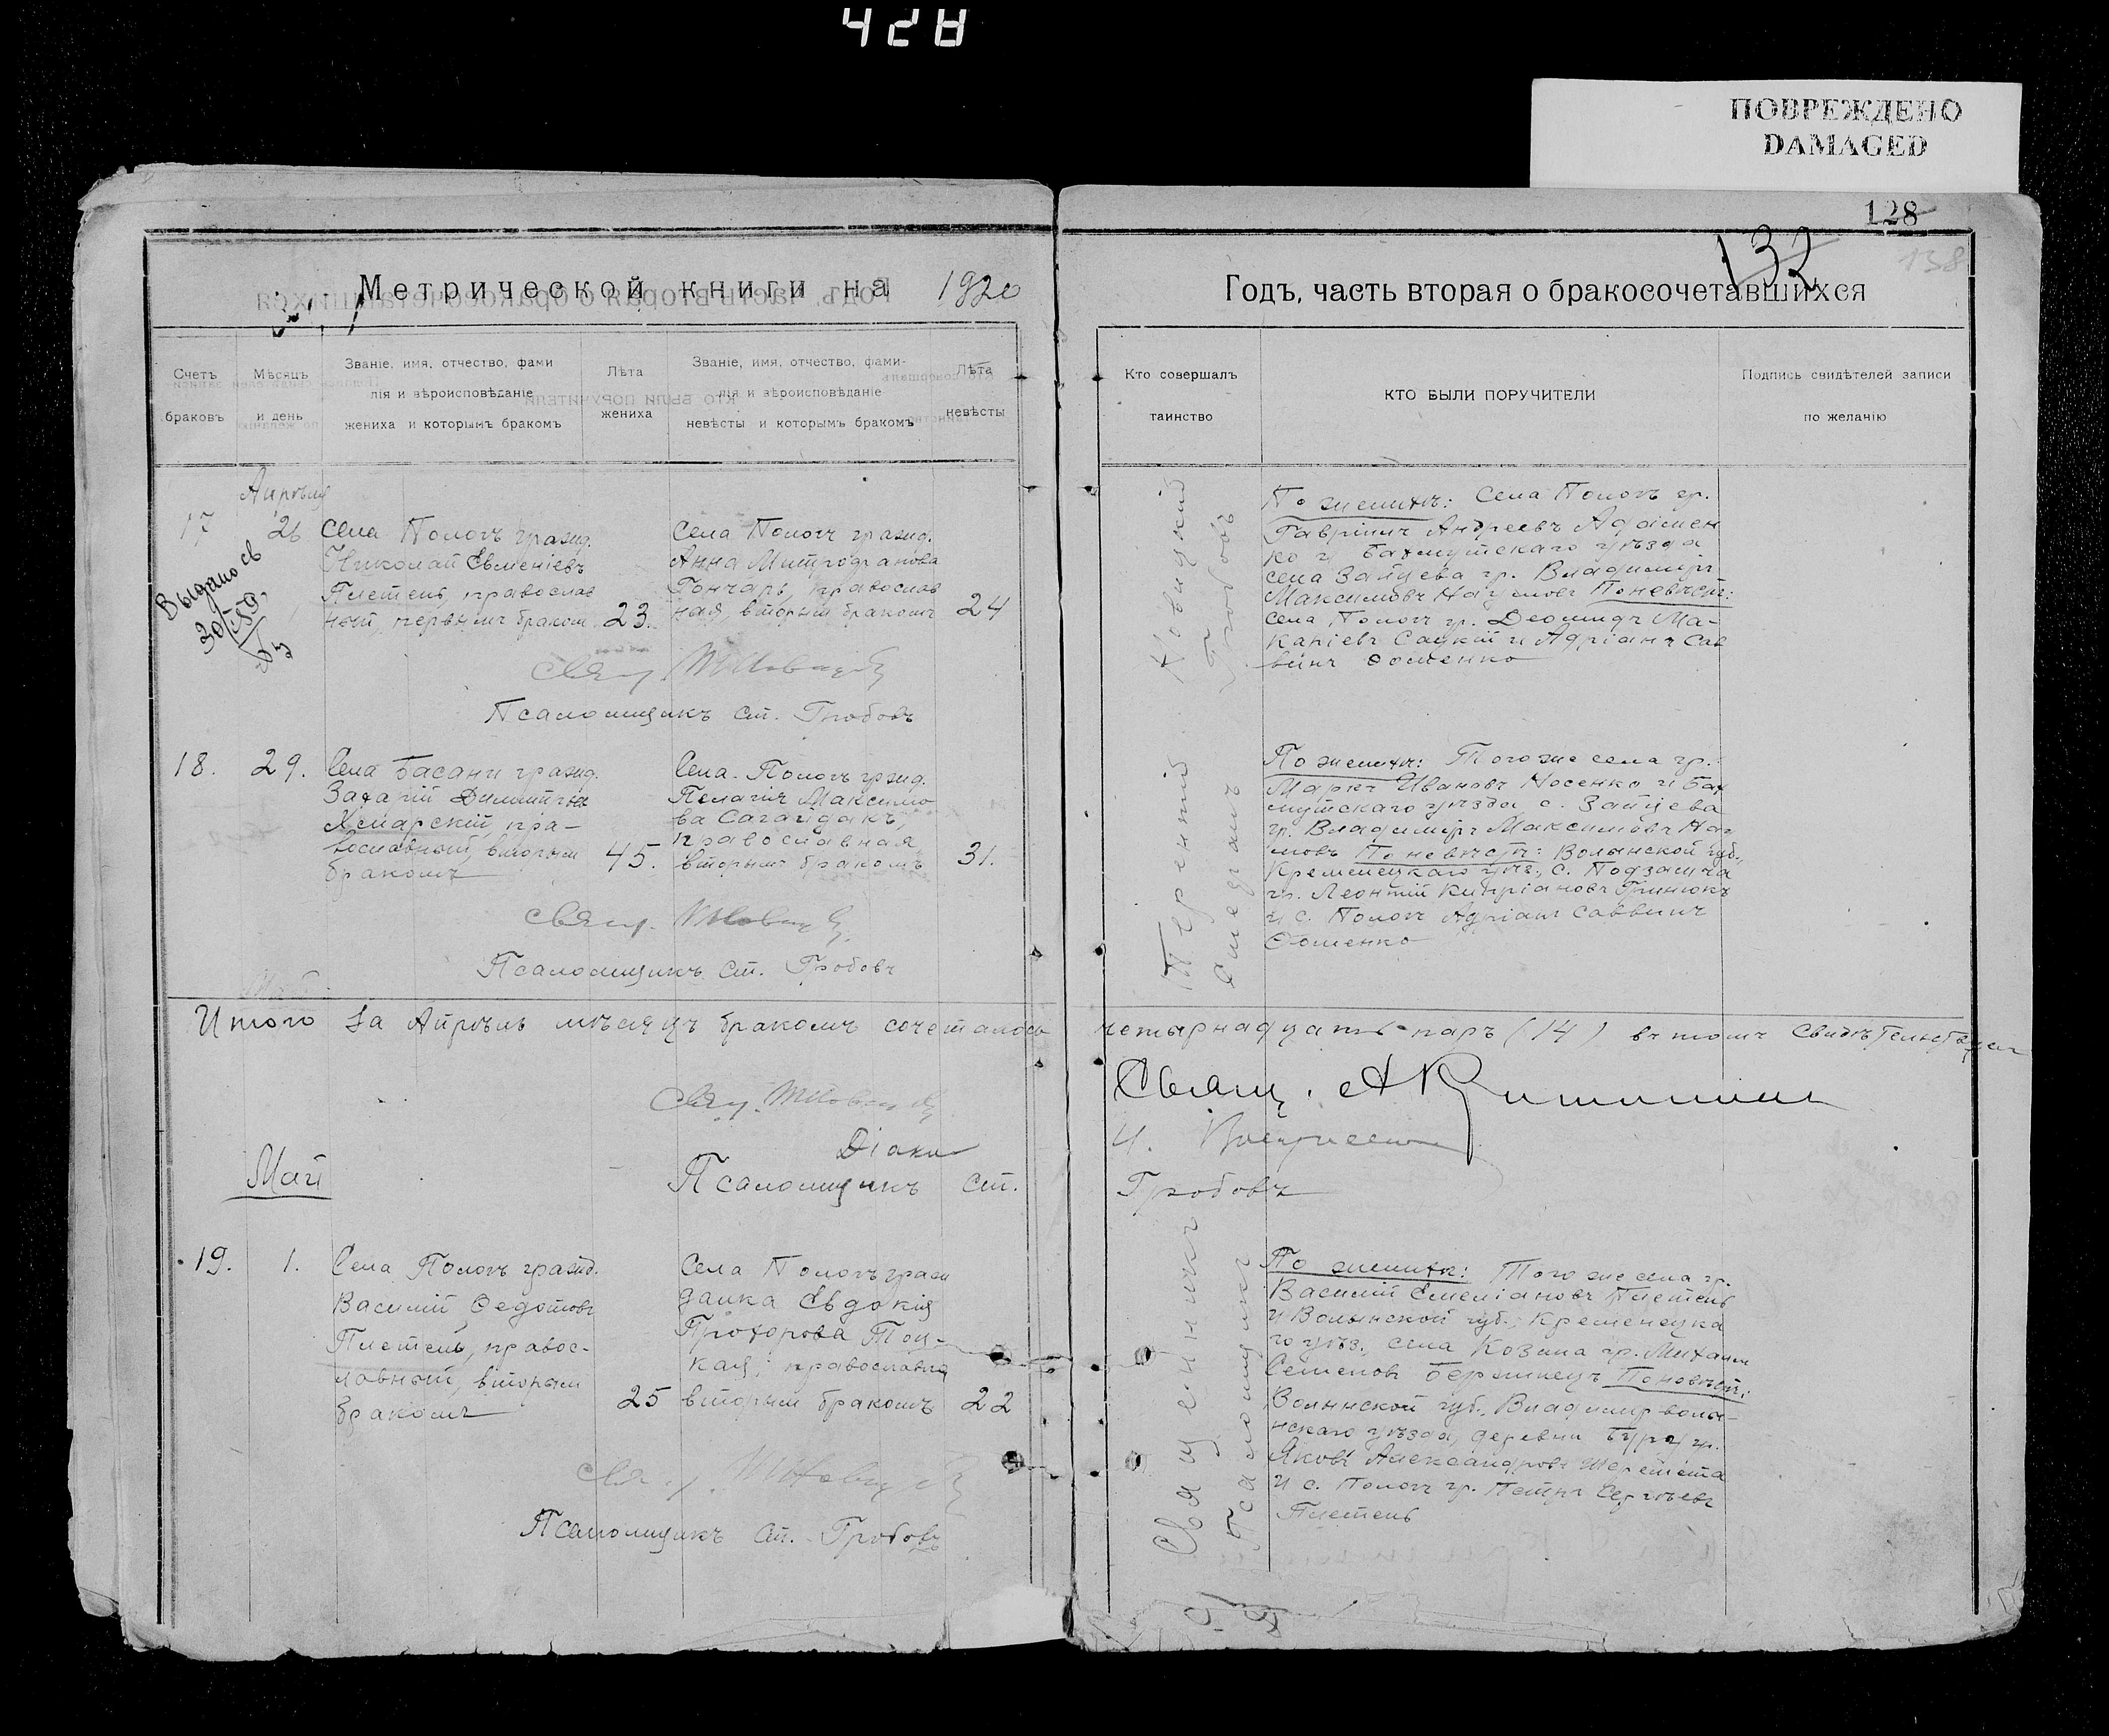 428
ПОВРЕЖДЕНО
DAMAGED
128
132
138
Метрической книги на 1920
Годъ, часть вторая о бракосочетавшихся
Счетъ браковъ
Мѣсяцъ и день
Званіе, имя, отчество, фами
лія и вѣроисповѣданіе
жениха и которымъ бракомъ
Лѣта жениха
Званіе, имя, отчество, фами-
лія и вѣроисповѣданіе
невѣсты и которымъ бракомъ
Лѣта невѣсты
Кто совершалъ
таинство
КТО БЫЛИ ПОРУЧИТЕЛИ
Подпись свидѣтелей записи
по желанію
Апрѣля
17 26
Села Пологъ гражд.
Николай Евменіевъ
Плетень, православ
ный, первымъ браком 23.
Села Пологъ гражд.
Анна Митрофанова
Гончаръ, православ
ная, вторым бракомъ 24
Выдано св
30
По женихѣ: Села Пологъ гр.
Гавріилъ Андреевъ Адамен
ко и Бахмутскаго уѣзда
села Зайцева гр. Владиміръ
Максимовъ Наумовъ По невѣстѣ:
села Пологъ гр. Деомидъ Ма-
каріевъ Сацкій и Адріанъ Сав
винъ Фоменко
Свящ.
Псаломщикъ Ст. Гробовъ
18. 29.
Села Басани гражд.
Захарій Димитріев
Хмарскій, пра-
вославный, вторым
бракомъ 45.
Села Пологъ гражд.
Пелагія Максимо
ва Сагайдакъ,
православная
вторымъ бракомъ 31.
По женихѣ: Того же села гр.
Маркъ Ивановъ Носенко и Бах
мутскаго уѣзда с. Зайцева
гр. Владиміръ Максимовъ Нау
мовъ По невѣстѣ: Волынской губ.,
Кременецкаго уѣз., с. Подзамча
гр. Леонтій Кипріановъ Гринюкъ
и с. Пологъ Адріанъ Саввинъ
Фоменко
Свящ.
Псаломщикъ Ст. Гробовъ
Терентій
Новицкій
Гробовъ
Итого за Апрѣль мѣсяцъ бракомъ сочеталось четырнадцать паръ (14) въ томъ свидѣтельствуем
Свящ.
Свящ. А
Діакон
И.
Псаломщикъ Ст. Гробовъ
Май
19. 1.
Села Пологъ гражд.
Василій Федотовъ
Плетень, правос-
лавный, вторым
бракомъ 25
Села Пологъ граж
данка Евдокія
Прохорова Тоц-
кая, православна
вторым бракомъ 22
Священникъ
Псаломщикъ
По женихѣ: Того же села гр.
Василій Емеліановъ Плетень
и Волынской губ., Кременецка
го уѣз. села Козина гр. Михаил
Семеновъ По невѣстѣ:
Волынской губ., Владимирволы-
нскаго уѣзда, деревни гр.
Яковъ Александровъ Шеремета
и с. Пологъ гр. Петръ Сергѣевъ
Плетень
Свящ.
Псаломщикъ Ст. Гробовъ